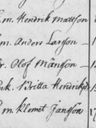 m. Hendrik Mattson
m. Anders Larsson
r. Olof Månson
k. Britta Hendriksd
m Klemet Jansson